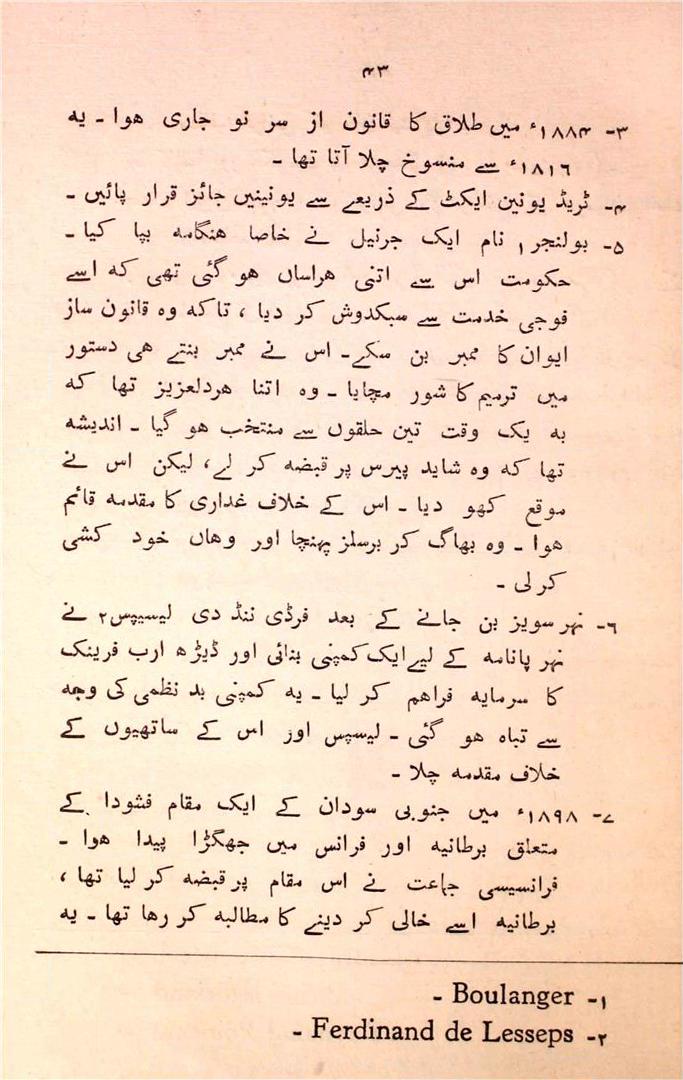 ۴۳
۳- ۱۸۸۴ء میں طلاق کا قانون از سر نو جاری ھوا ۔ یہ
۱۸۱۶ء سے منسوخ چلا آتا تھا ۔
۴- ٹریڈ یونین ایکٹ کے ذریعے سے یونینیں جائز قرار پائیں ۔
۵- بولنجر۱ نام ایک جرنیل نے خاصا ھنگامہ بپا کیا ۔
حکومت اس سے اتنی ھراساں ھو گئی تھی کہ اسے
فوجی خدمت سے سبکدوش کر دیا ، تاکہ وہ قانون ساز
ایوان کا ممبر بن سکے۔ اس نے ممبر بنتے ھی دستور
میں ترمیم کا شور مچایا ۔ وہ اتنا ھردلعزیز تھا کہ
بہ یک وقت تین حلقوں سے منتخب ھو گیا ۔ اندیشہ
تھا کہ وہ شاید پیرس پر قبضہ کر لے، لیکن اس نے
موقع کھو دیا ۔ اس کے خلاف غداری کا مقدمہ قائم
ھوا ۔ وہ بھاگ کر برسلز پہنچا اور وھاں خود کشی
کر لی ۔
۶- نہر سویز بن جانے کے بعد فرڈی ننڈ دی لیسیپس۲ نے
نہر پانامہ کے لیے ایک کمپنی بنائی اور ڈیڑھ ارب فرینک
کا سرمایہ فراھم کر لیا ۔ یہ کمپنی بد نظمی کی وجہ
سے تباہ ھو گئی ۔ لیسپس اور اس کے ساتھیوں کے
خلاف مقدمہ چلا ۔
۷- ۱۸۹۸ء میں جنوبی سودان کے ایک مقام فشودا کے
متعلق برطانیہ اور فرانس میں جھگڑا پیدا ھوا ۔
فرانسیسی جماعت نے اس مقام پر قبضہ کر لیا تھا ،
برطانیہ اسے خالی کر دینے کا مطالبہ کر رھا تھا ۔ یہ
۱- Boulanger ۔
۲- Ferdinand de Lesseps ۔